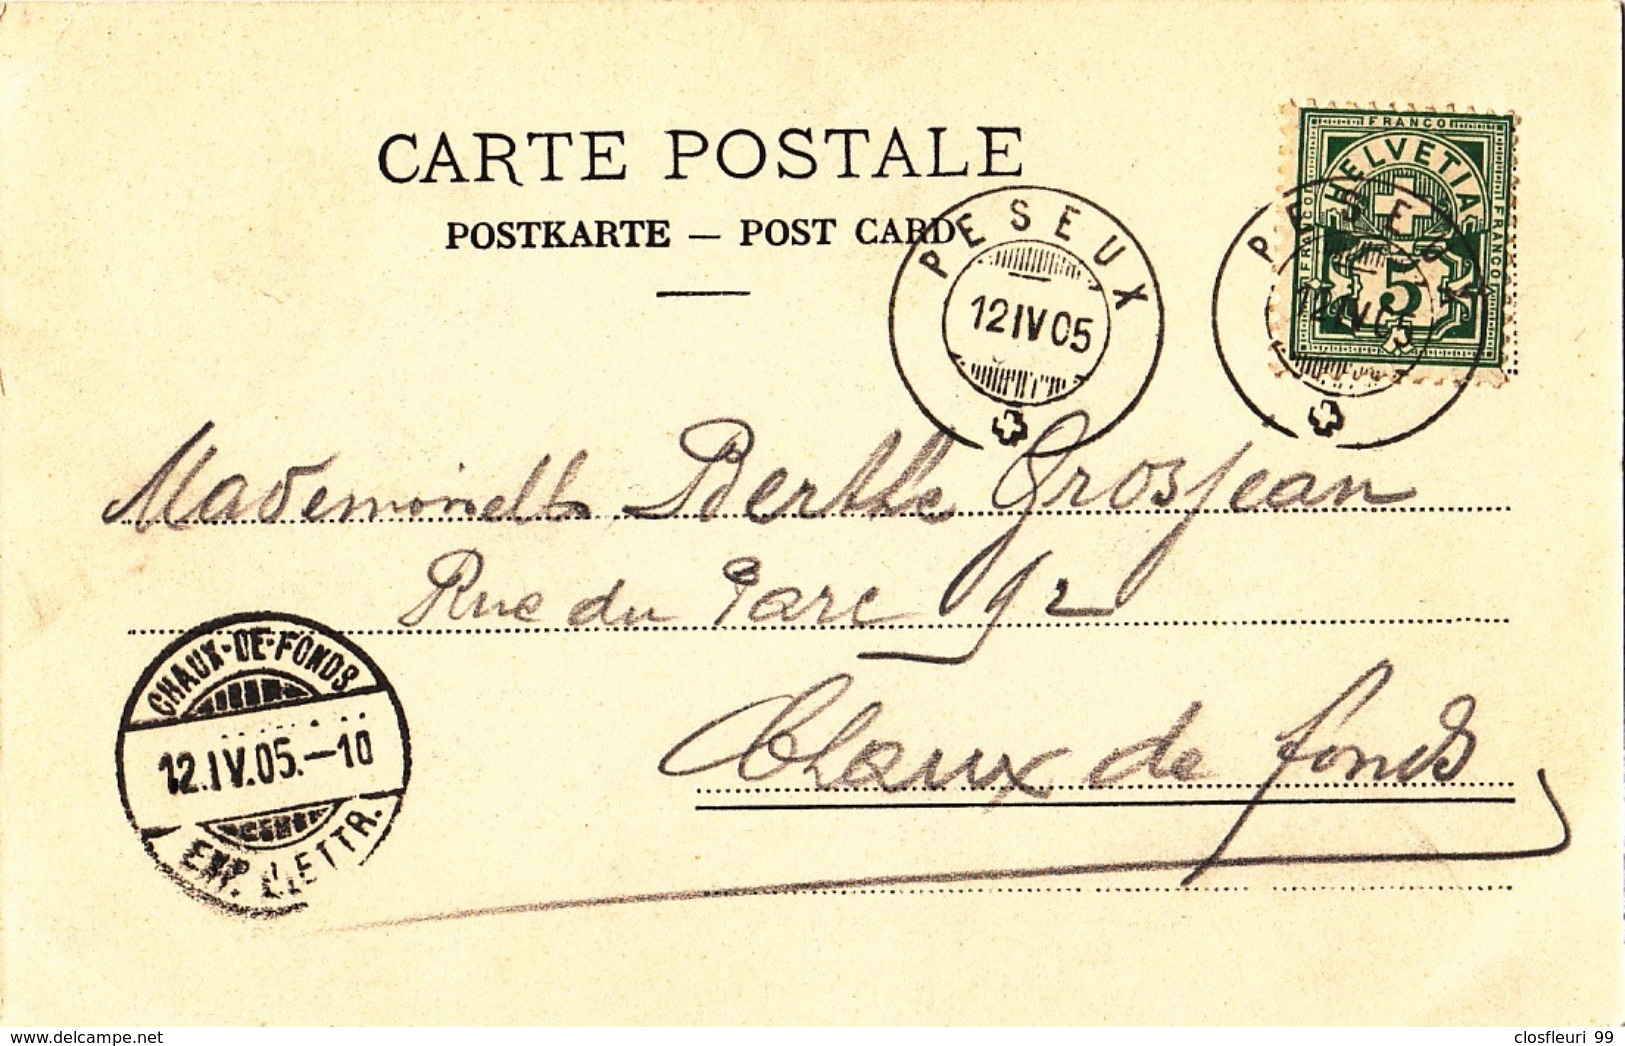 CARTE POSTALE
POSTKARTE — POST CARD
FRANCO
HELVETIA
FRANCO
FRANCO
5
PESEUX
12 IV 05
PESEUX
12 IV 05
Mademoiselle Berthe Grosjean
Rue du Parc 92
Chaux de fonds
CHAUX-DE-FONDS
12.IV.05.-10
EXP. LETTR.
delcampe.net
closfleuri 99